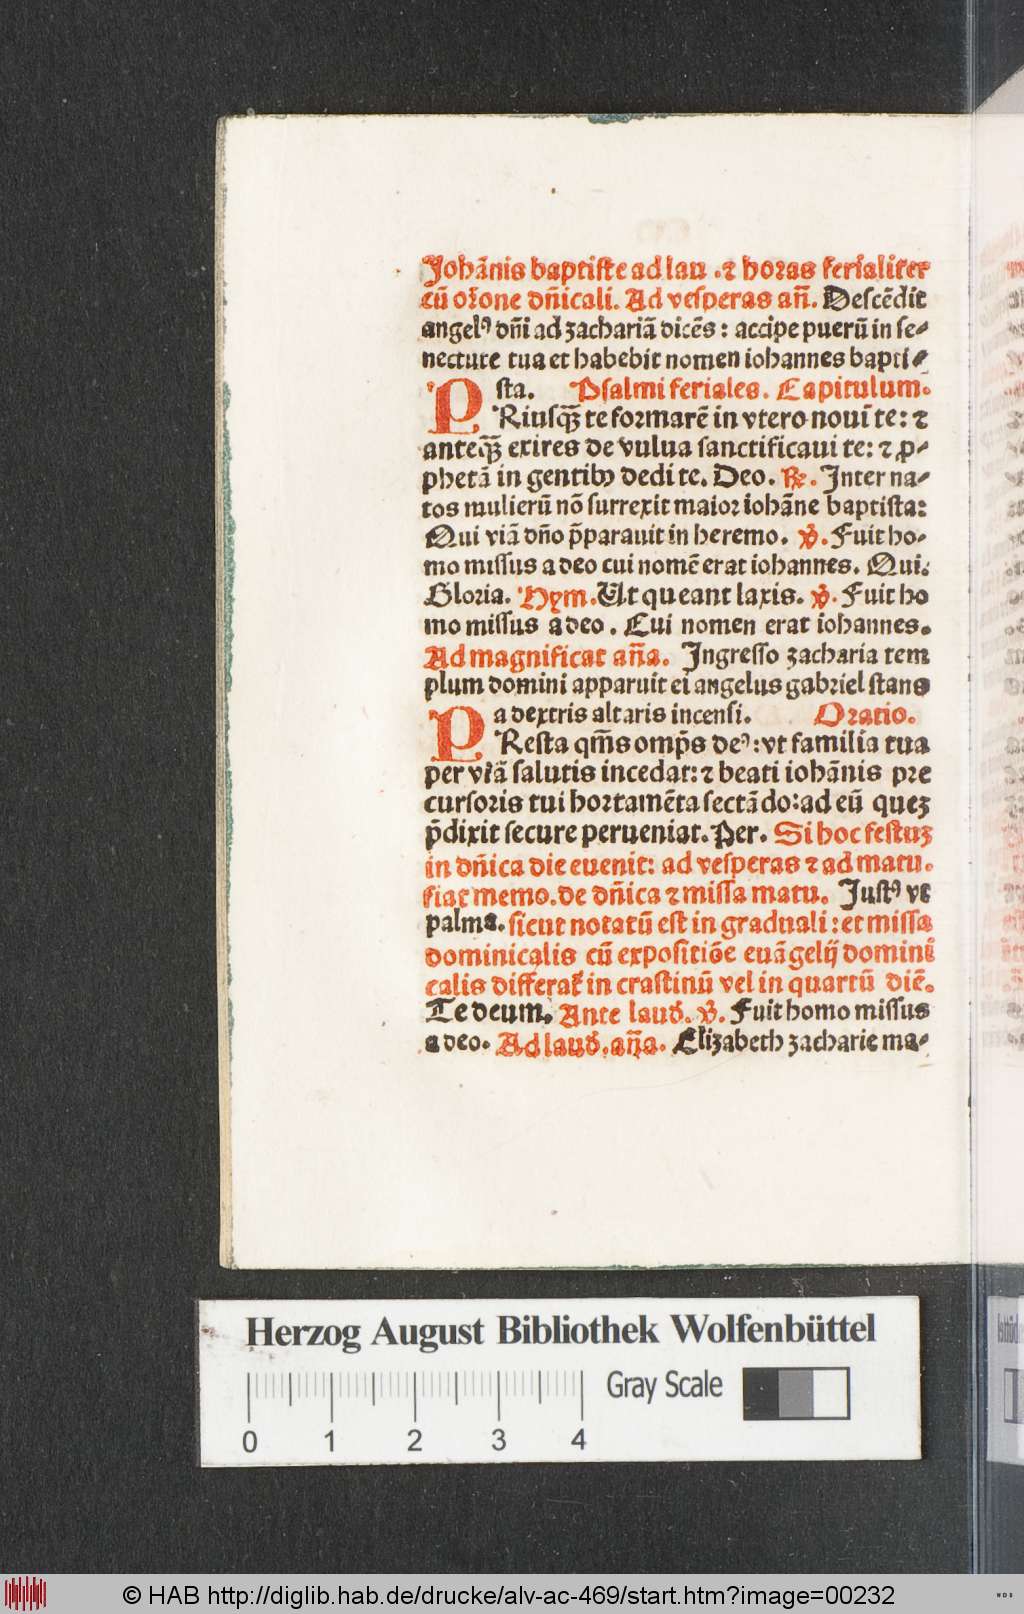 Johãnis baptiste ad lau .⁊ horas ferialiter
cũ orõne dñicali. Ad vesperas añ. Descẽdit
angelꝰ dñi ad zachariã dicẽs : accipe puerũ in se⸗
nectute tua et habebit nomen iohannes bapti⸗
sta. Psalmi feriales. Capitulum.
PRiusꝙ̃ te formarẽ in vtero noui te: ⁊
anteꝙ̃ exires de vulua sanctificaui te: ⁊ ꝓ⸗
phetã in gentibꝰ dedi te. Deo. ℟. Inter na⸗
tos mulierũ nõ surrexit maior iohãne baptista:
Qui viã dño p̃parauit in heremo. ℣. Fuit ho⸗
mo missus a deo cui nomẽ erat iohannes. Qui.
Gloria. Hym. Ut queant laxis. ℣. Fuit ho
mo missus a deo. Cui nomen erat iohannes.
Ad magnificat aña. Ingresso zacharia tem
plum domini apparuit ei angelus gabriel stans
a dextris altaris incensi. Oratio.
PResta qm̃s omp̃s deꝰ: vt familia tua
per vĩã salutis incedat: ⁊ beati iohãnis pre
cursoris tui hortamẽta sectãdo: ad eũ quez
p̃dixit secure perueniat. Per. Si hoc festuz
in dñica die euenit: ad vesperas ⁊ ad matu.
fiat memo. de dñica ⁊ missa matu. Justꝰ vt
palma. sicut notatũ est in graduali: et missa
dominicalis cũ expositiõe euãgelij domini
calis differat̃ in crastinũ vel in quartũ diẽ.
Te deum. Ante laud. ℣. Fuit homo missus
a deo. Ad laud. aña. Elizabeth zacharie ma⸗
Herzog August Bibliothek Wolfenbüttel
Gray Scale
0 1 2 3 4
© HAB http://diglib.hab.de/drucke/alv-ac-469/start.htm?image=00232